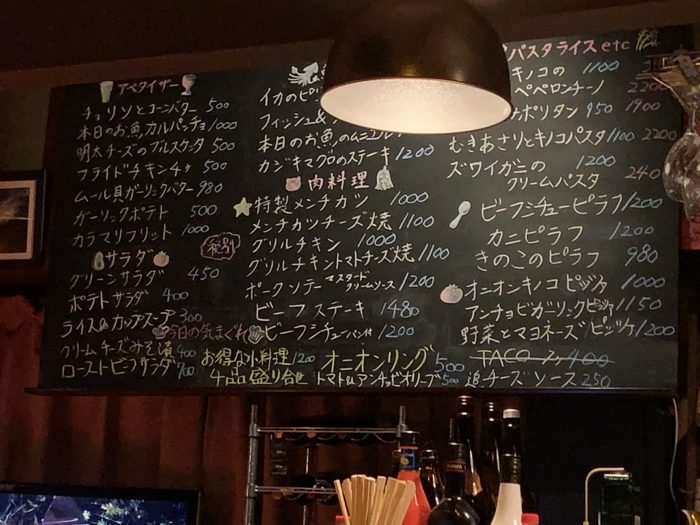 アペタイザー
チョリソとコーンバター 500
本日のお魚カルパッチョ 1000
明太チーズのブルスケッタ 500
フライドチキン4ケ 500
ムール貝ガーリックバター 980
ガーリックポテト 500
カラマリフリット 1000
税別
サラダ
グリーンサラダ 450
ポテトサラダ 400
ライス&カップスープ 300
クリームチーズみそ漬 400
ローストビーフサラダ
イカの
フィッシュ&
本日のお魚のムニエル
カジキマグロのステーキ 1200
肉料理
特製メンチカツ 1000
メンチカツチーズ焼 1100
グリルチキン 1000
グリルチキントマトチーズ焼 1100
ポークソテー マスタードクリームソース 1200
ビーフステーキ 1480
ビーフシチューパン付 1200
今日の気まぐれ
お得な小料理 1200
4品盛り合せ
オニオンリング 500
トマト&アンチョビオリーブ 500
パスタライス etc
キノコの 1100
ペペロンチーノ 2200
ナポリタン 950 1900
むきあさりとキノコパスタ 1100 2200
ズワイガニの 1200
クリームパスタ 240
ビーフシチューピラフ 1200
カニピラフ 1200
きのこのピラフ 980
オニオンキノコピッツァ 1000
アンチョビガーリックピッツァ 1150
野菜とマヨネーズピッツァ 1200
追チーズソース 250